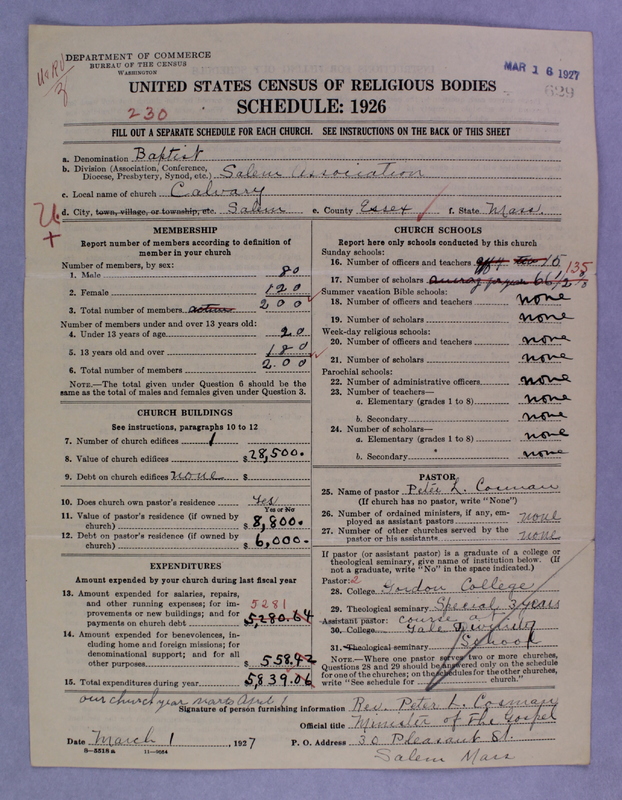 DEPARTMENT OF COMMERCE
BUREAU OF THE CENSUS
WASHINGTON
MAR 16 1927
629
UNITED STATES CENSUS OF RELIGIOUS BODIES
230
SCHEDULE: 1926
FILL OUT A SEPARATE SCHEDULE FOR EACH CHURCH. SEE INSTRUCTIONS ON THE BACK OF THIS SHEET
a. Denomination Baptist
b. Division (Association, Conference, Diocese, Presbytery, Synod, etc.) Salem Association
c. Local name of church Calvary
d. City, town, village, or township, etc. Salem e. County Essex f. State Mass.
MEMBERSHIP
Report number of members according to definition of
member in your church
Number of members, by sex:
1. Male 80
2. Female 120
3. Total number of members 200
Number of members under and over 13 years old:
4. Under 13 years of age 20
5. 13 years old and over 180
6. Total number of members 200
NOTE.—The total given under Question 6 should be the
same as the total of males and females given under Question 3.
CHURCH BUILDINGS
See instructions, paragraphs 10 to 12
7. Number of church edifices 1
8. Value of church edifices $28,500.
9. Debt on church edifices none $
10. Does church own pastor's residence Yes
Yes or No
11. Value of pastor's residence (if owned by
church) $8,800.
12. Debt on pastor's residence (if owned by
church) $6,000.
EXPENDITURES
Amount expended by your church during last fiscal year
13. Amount expended for salaries, repairs,
and other running expenses; for im-
provements or new buildings; and for
payments on church debt 5281 $5,280.64
14. Amount expended for benevolences, in-
cluding home and foreign missions; for
denominational support; and for all
other purposes $558.42
15. Total expenditures during year $5,839.06
CHURCH SCHOOLS
Report here only schools conducted by this church
Sunday schools:
16. Number of officers and teachers 15
17. Number of scholars 135
Summer vacation Bible schools:
18. Number of officers and teachers none
19. Number of scholars none
Week-day religious schools:
20. Number of officers and teachers none
21. Number of scholars none
Parochial schools:
22. Number of administrative officers none
23. Number of teachers—
a. Elementary (grades 1 to 8) none
b. Secondary none
24. Number of scholars—
a. Elementary (grades 1 to 8) none
b. Secondary none
PASTOR
25. Name of pastor Peter L. Cosman
(If church has no pastor, write "None")
26. Number of ordained ministers, if any, em-
ployed as assistant pastors none
27. Number of other churches served by the
pastor or his assistants none
If pastor (or assistant pastor) is a graduate of a college or
theological seminary, give name of institution below. (If
not a graduate, write "No" in the space indicated.)
Pastor: 2
28. College Gordon College
29. Theological seminary Special 3 years
Assistant pastor: course at
30. College Yale Divinity
31. Theological seminary School
NOTE.—Where one pastor serves two or more churches,
Questions 28 and 29 should be answered only on the schedule
for one of the churches; on the schedules for the other churches,
write "See schedule for church."
our church year starts April 1
Signature of person furnishing information Rev. Peter L. Cosman
Official title Minister of the Gospel
Date March 1, 1927 P. O. Address 30 Pleasant St.
8—5518a 11—9664
Salem Mass